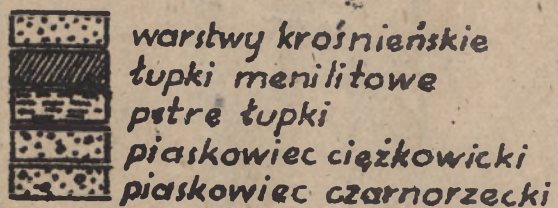 warstwy krośnieńskie
łupki menilitowe
pstre łupki
piaskowiec ciężkowicki
piaskowiec czarnorzecki